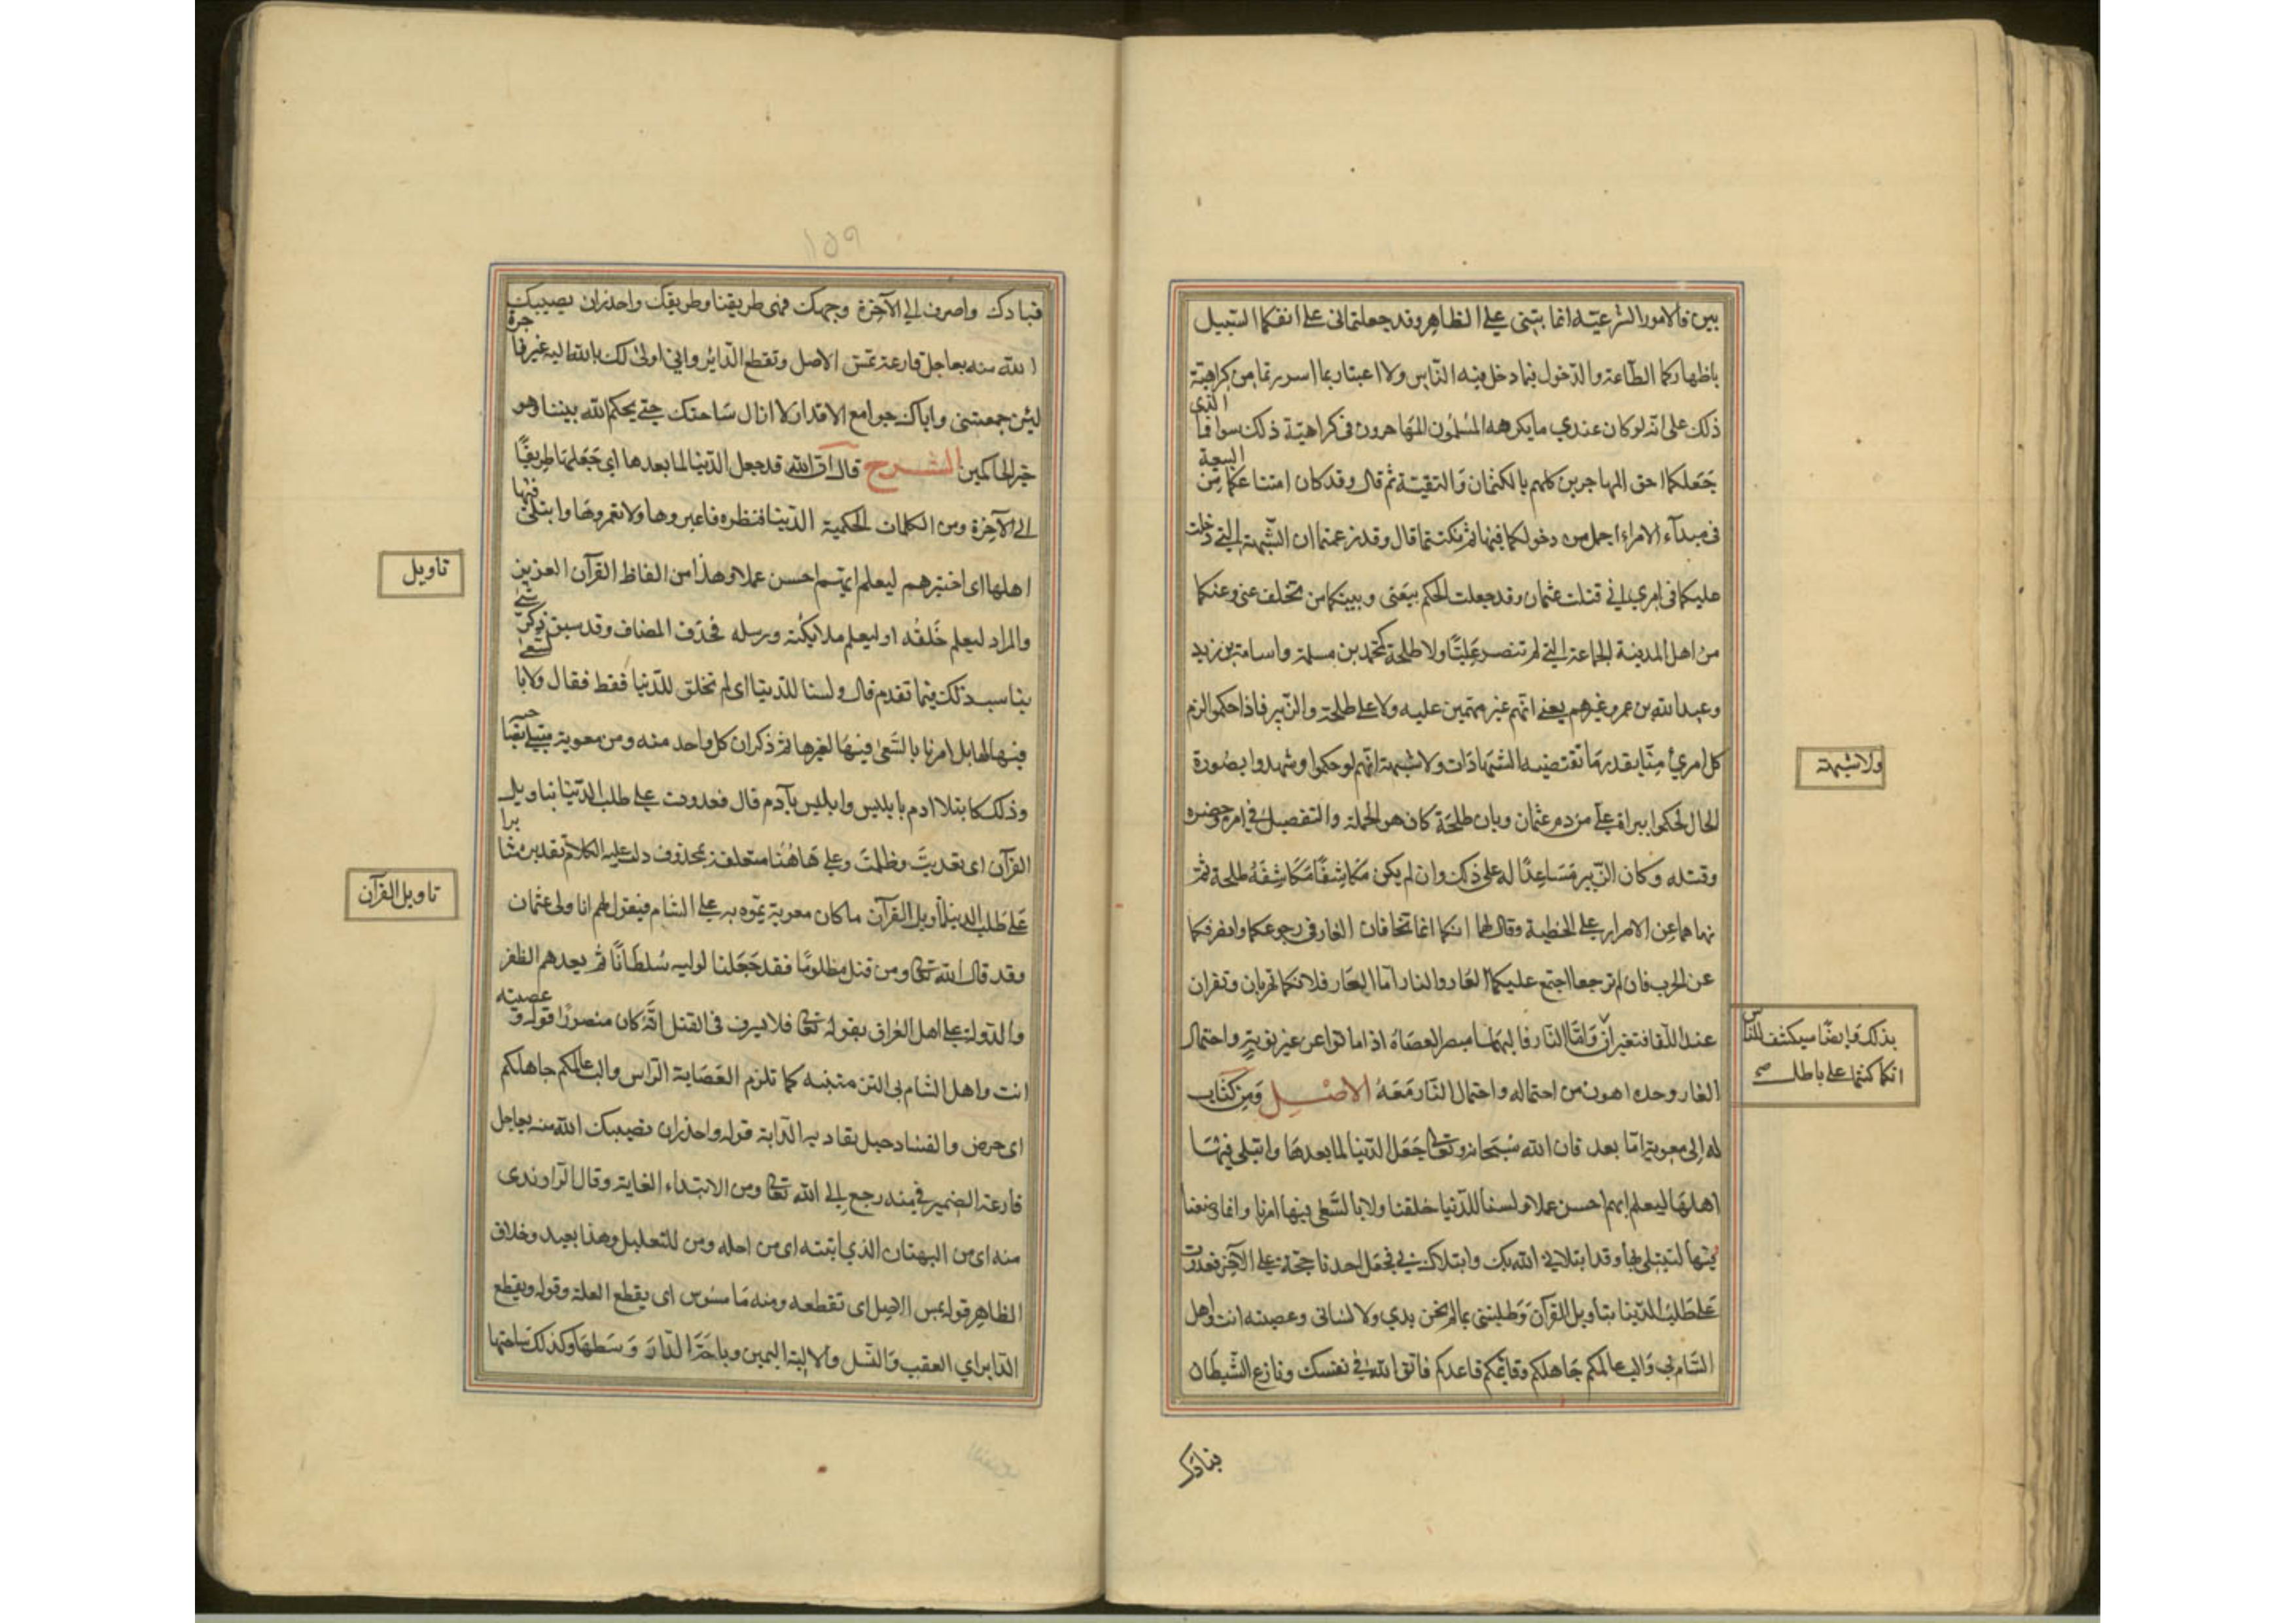 بين فالامور الشرعيّه انما يبتنى على الظاهر وقد جعلتمانى على انفكما السّبيل
باظهاركما الطّاعة والدّخول فيما دخل فيه النّاس ولا اعتبار بما اسررتما من كراهيّة
ذلك على انّه لو كان عندي ما يكرهه المُسلمُون المهَاجرون فى كراهيّة ذلك سوا فما الذى
جَعَلكما احق المهاجرين كلهم بالكتمان وَالتقيّة ثم قال وقد كان امتناعكما مِن البيعة
فى مبدآء الامر اجمل من دخولكما فيها ثم نكثتما قال وقد زعمتما ان الشّبهة التى دخلت
عليكما فى امري انى قتلت عثمان وقد جعلت الحكم بيَنى وبينكما من تخلف عنى وعنكما
من اهل المدينة الجماعة التى لم تنصر عَليًّا ولا طلحة كمحمّد بن مسلمة واسامة بن زيد
وعبد الله بن عمر وغيرهم يعنى انهم غير متهمين عليه ولا على طلحة والزّبير فاذا حكموا لزم
كل امرئ منّا بقدر مَا تقتضيه الشّهادَات ولا شبهة انّهم لو حكموا وشهدوا بصُورة
الحال لحكموا ببراة على من دم عثمان وبان طلحَة كان هو الجملة والتفصيل فى امر حضره
وقتله وكان الزّبير مَسَاعِدًا له على ذلك وان لم يكن مكَاشِفًا مكَاشِفَةُ طلحة ثمّ
نهاهما عن الاصرار على الخطية وقال لهما انكما انما تخافان العار فى رجوعكما وانصرفكما
عن الحرب فان لم ترجعا اجتمع عليكما العَار والنار امّا العَار فلانكما تهزمان وتفران
عند اللّقا فتعيران وَامّا النّار فاليهَا مصير العصَاة اذا ماتوا عن غير توبَةٍ واحتمال
العار وحده اهون من احتماله واحتمال النّار مَعَهُ الاصْل وَمِن كتاب
له إلى معوية امّا بعد فان الله سُبحانه وتعَالى جَعَل الدّنيا لما بعدهَا وابتلى فيهَا
اهلهَا ليعلم ايهم احسن عملا ولسنا للدّنيا خلقنا ولا بالسَّعى فيها امرنا وانما وضعنا
فيها لنبتلى بها وقد ابتلانى الله بك وابتلاك بى فجعَل احدنا حجّة على الآخر فعدوت
عَلى طَلب الدّنيا بتأويل القرآن وَطلبتنى بما لم تجن يدي ولا لسانى وعصبته انت واهل
الشّام بى وَالب عالمكم جَاهلكم وقائمكم قاعدكم فاتق الله فى نفسك ونازع الشّيطان
ولا شبهة
بذلك وَايضًا سيكشف للنّاس
انكما كنتما على باطل صح
قيادك
١٥٩
قيادك واصرف الى الآخرة وجهك فهى طريقنا وطريقك واحذر ان يصيبك
الله منه بعاجل قارعة تمسّ الاصل وتقطع الدّابر وانى اولى لك بالله الية غير فاجرة
لئن جمعتنى واياك جوامع الاقدار لا ازال سَاحتك حتى يحكم الله بيننا وهو
خير الحاكمين الشرح قال ان الله قد جعل الدّنيا لما بعدها اى جَعَلها طريقًا
الى الآخرة ومن الكلمات الحكمية الدّنيا قنطره فاعبروها ولا تعمروهَا وابتلى فيها
اهلها اى اختبرهم ليعلم ايهم احسن عملا وهذا من الفاظ القرآن العزيز
والمراد ليعلم خَلقُه او ليعلم ملايكته ورسله فحذف المضاف وقد سبق ذكر شى
يناسب ذلك فيما تقدم قال ولسنا للدّنيا اى لم نخلق للدّنيا فقط فقال ولا بالسعى
فيها لها بل امرنا بالسّعى فيها لغيرها ثم ذكر ان كل واحد منه ومن معوية مبتلى بصاحبه
وذلك كابتلا ادم بابليس وابليس بآدم قال فعدوت على طلب الدّنيا بتاويل
القرآن اى تعديتَ وظلمتَ وعلى هَاهُنا متعلقة بمحذوف دلت عليه الكلام تقديره مثابرا
عَلى طلب الدنيا وتأويل القرآن ما كان معوية يمّوه به على الشام فيقول لهم انا ولى عثمان
وقد قال الله تعالى ومن قتل مظلومًا فقد جَعَلنا لوليه سُلطَانًا ثم يعدهم الظفر
والدّولة على اهل العراق بقوله تعالى فلا يسرف فى القتل انّه كان منصورًا قوله وعصبته
انت واهل الشام بى التزمتنيه كما تلزم العَصَابة الرّاس والب عالمكم جاهلكم
اى حرض والقياد حبل يقاد به الدّابة قوله واحذر ان يصيبك الله منه بعاجل
قارعة الضمير فى منه رجع الى الله تعالى ومن لابتداء الغاية وقال الرّاوندى
منه اى من البهتان الذي اتيته اى من اجله ومن للتعليل وهذا بعيد وخلاف
الظاهر قوله يمس الاصل اى تقطعه ومنه مَا مسُوس اى يقطع العلة وقوله ويقطع
الدّابر اى العقب وَالنّسل والالية اليمين وباحَة الدّار وَسَطهَا وكذلك ساحتها
تاويل
تاويل القرآن